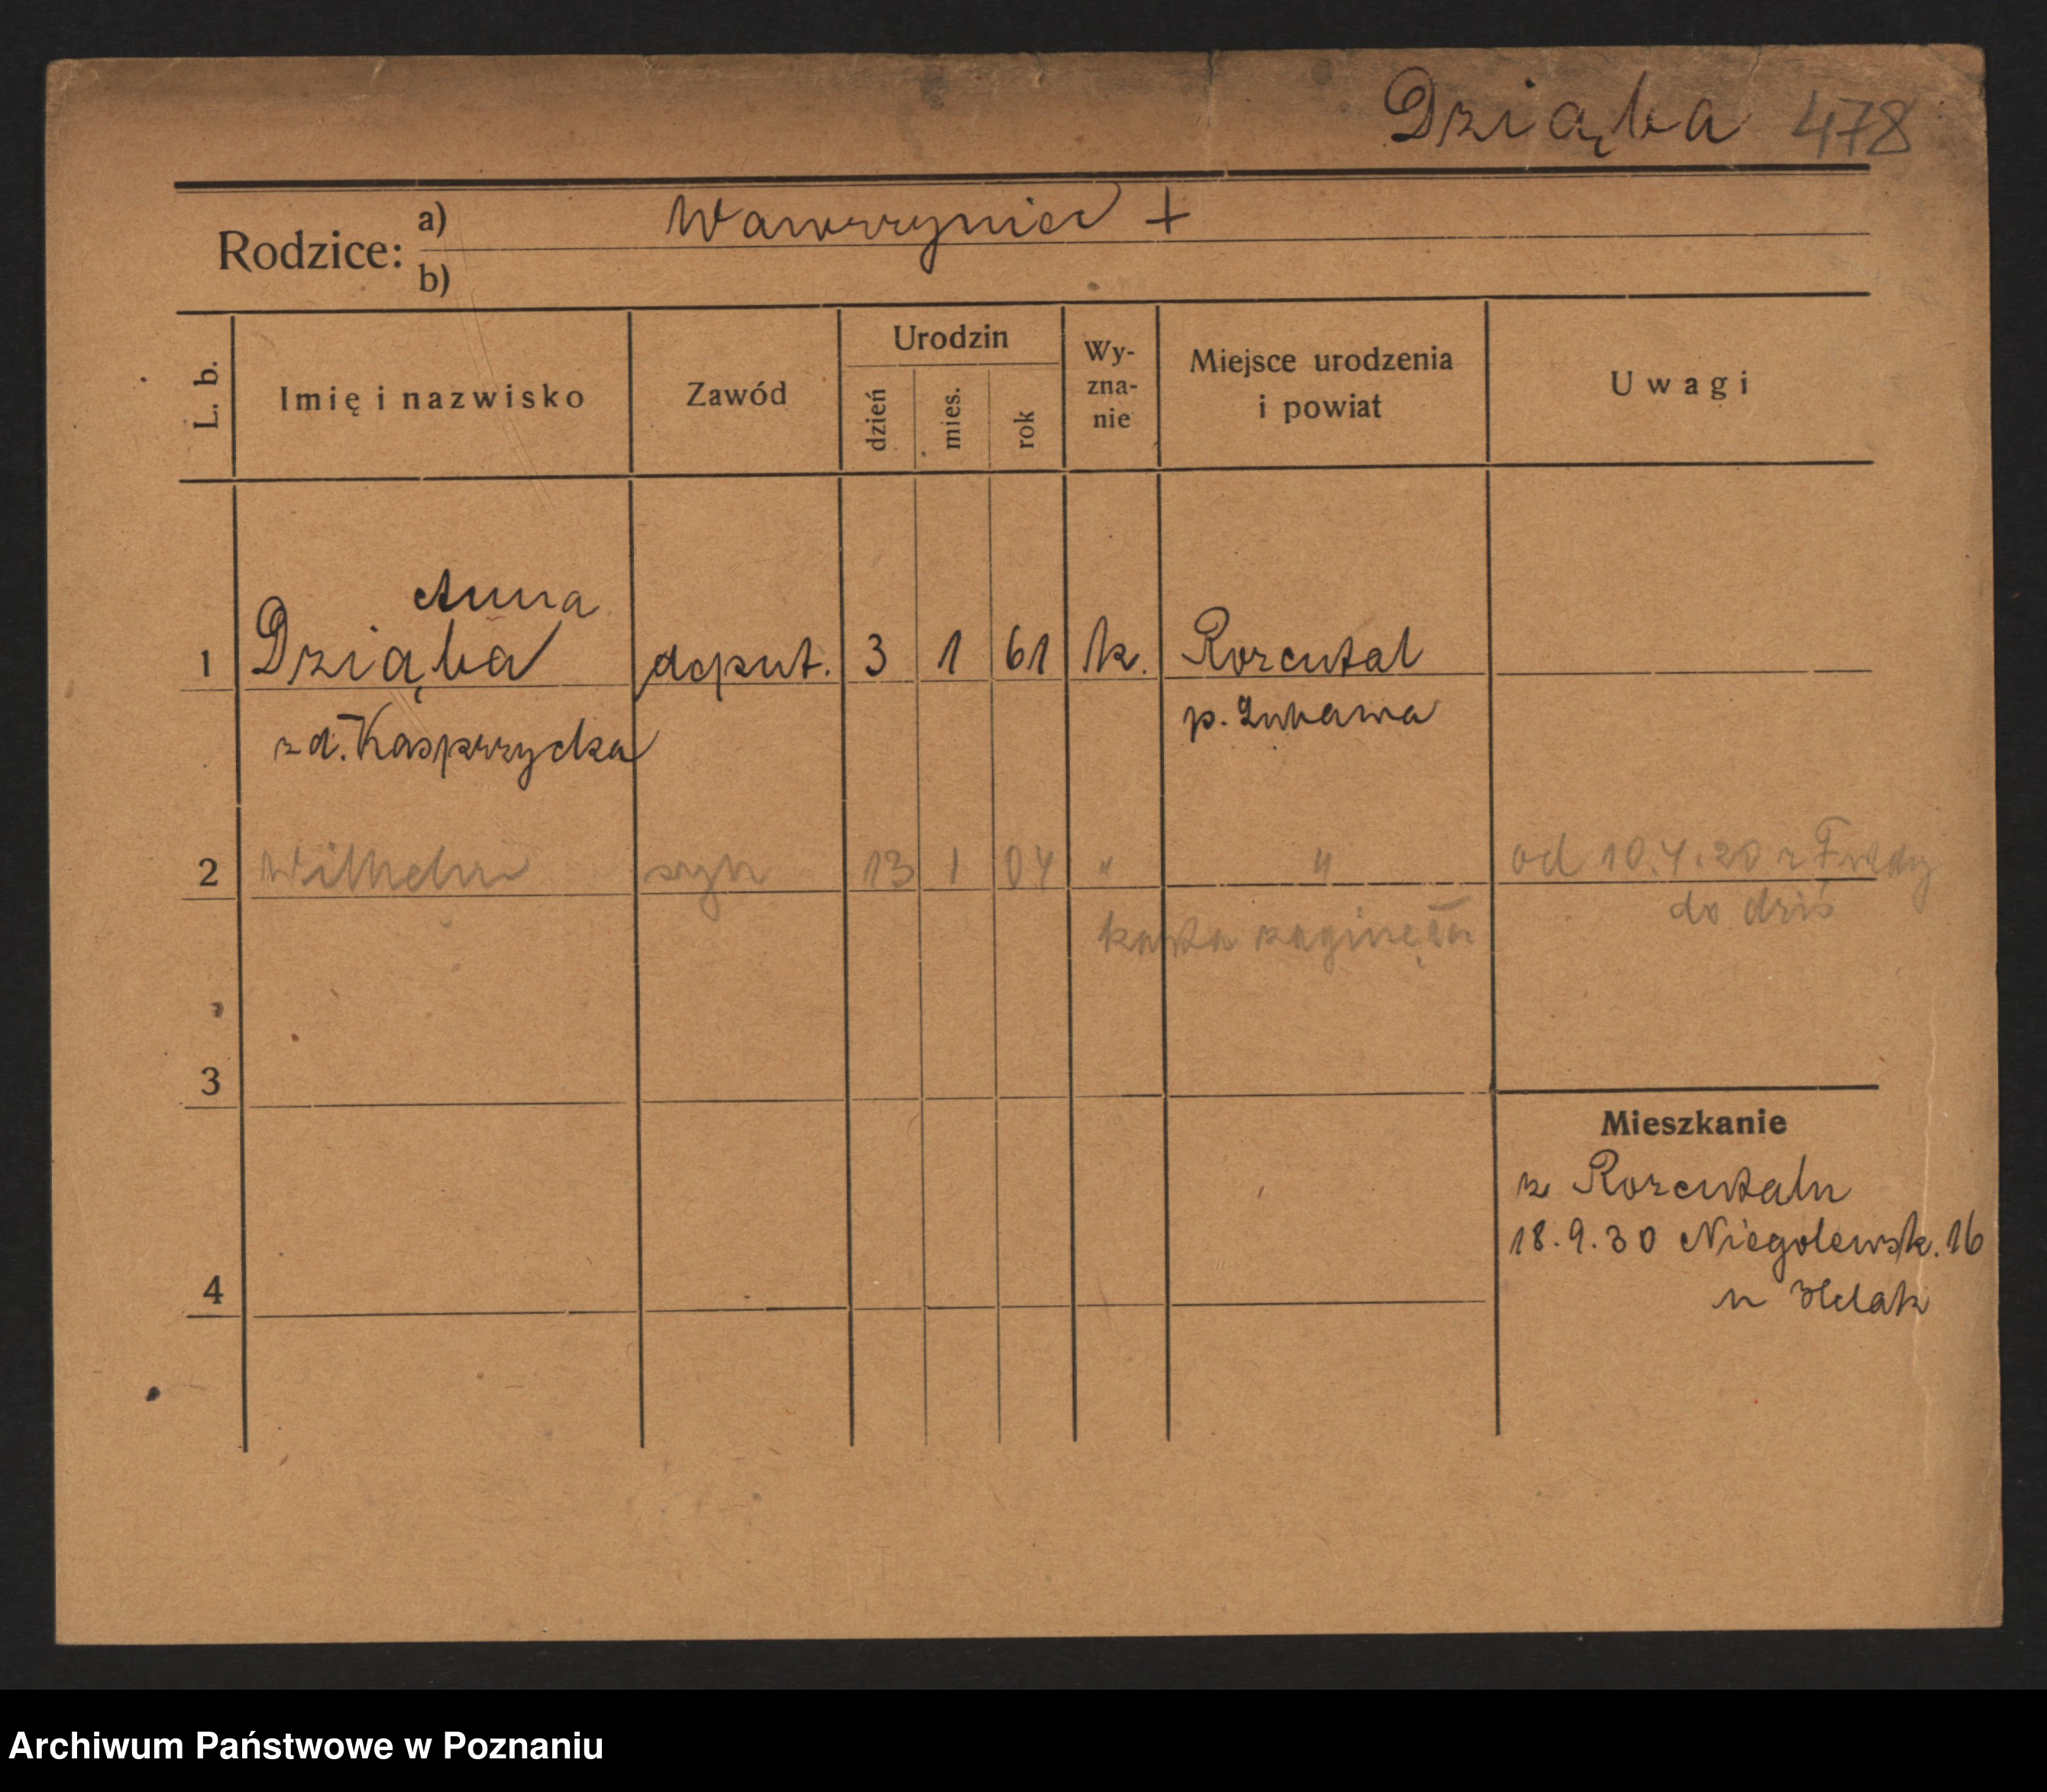 Dziąba 478
Rodzice: a) Wawrzyniec +
b)
L. b. Imię i nazwisko Zawód Urodzin dzień mies. rok Wy-zna-nie Miejsce urodzenia i powiat Uwagi
Anna
1 Dziąba deput. 3 1 61 k. Rozental
zd. Kasprzycka p. Lubawa
2 Wilhelm syn 13 1 04 " " od 10.4.20 z
do dziś
karta zaginęła
3
Mieszkanie
z Rozentalu
18.9.30 Niegolewsk. 16
4 u
Archiwum Państwowe w Poznaniu